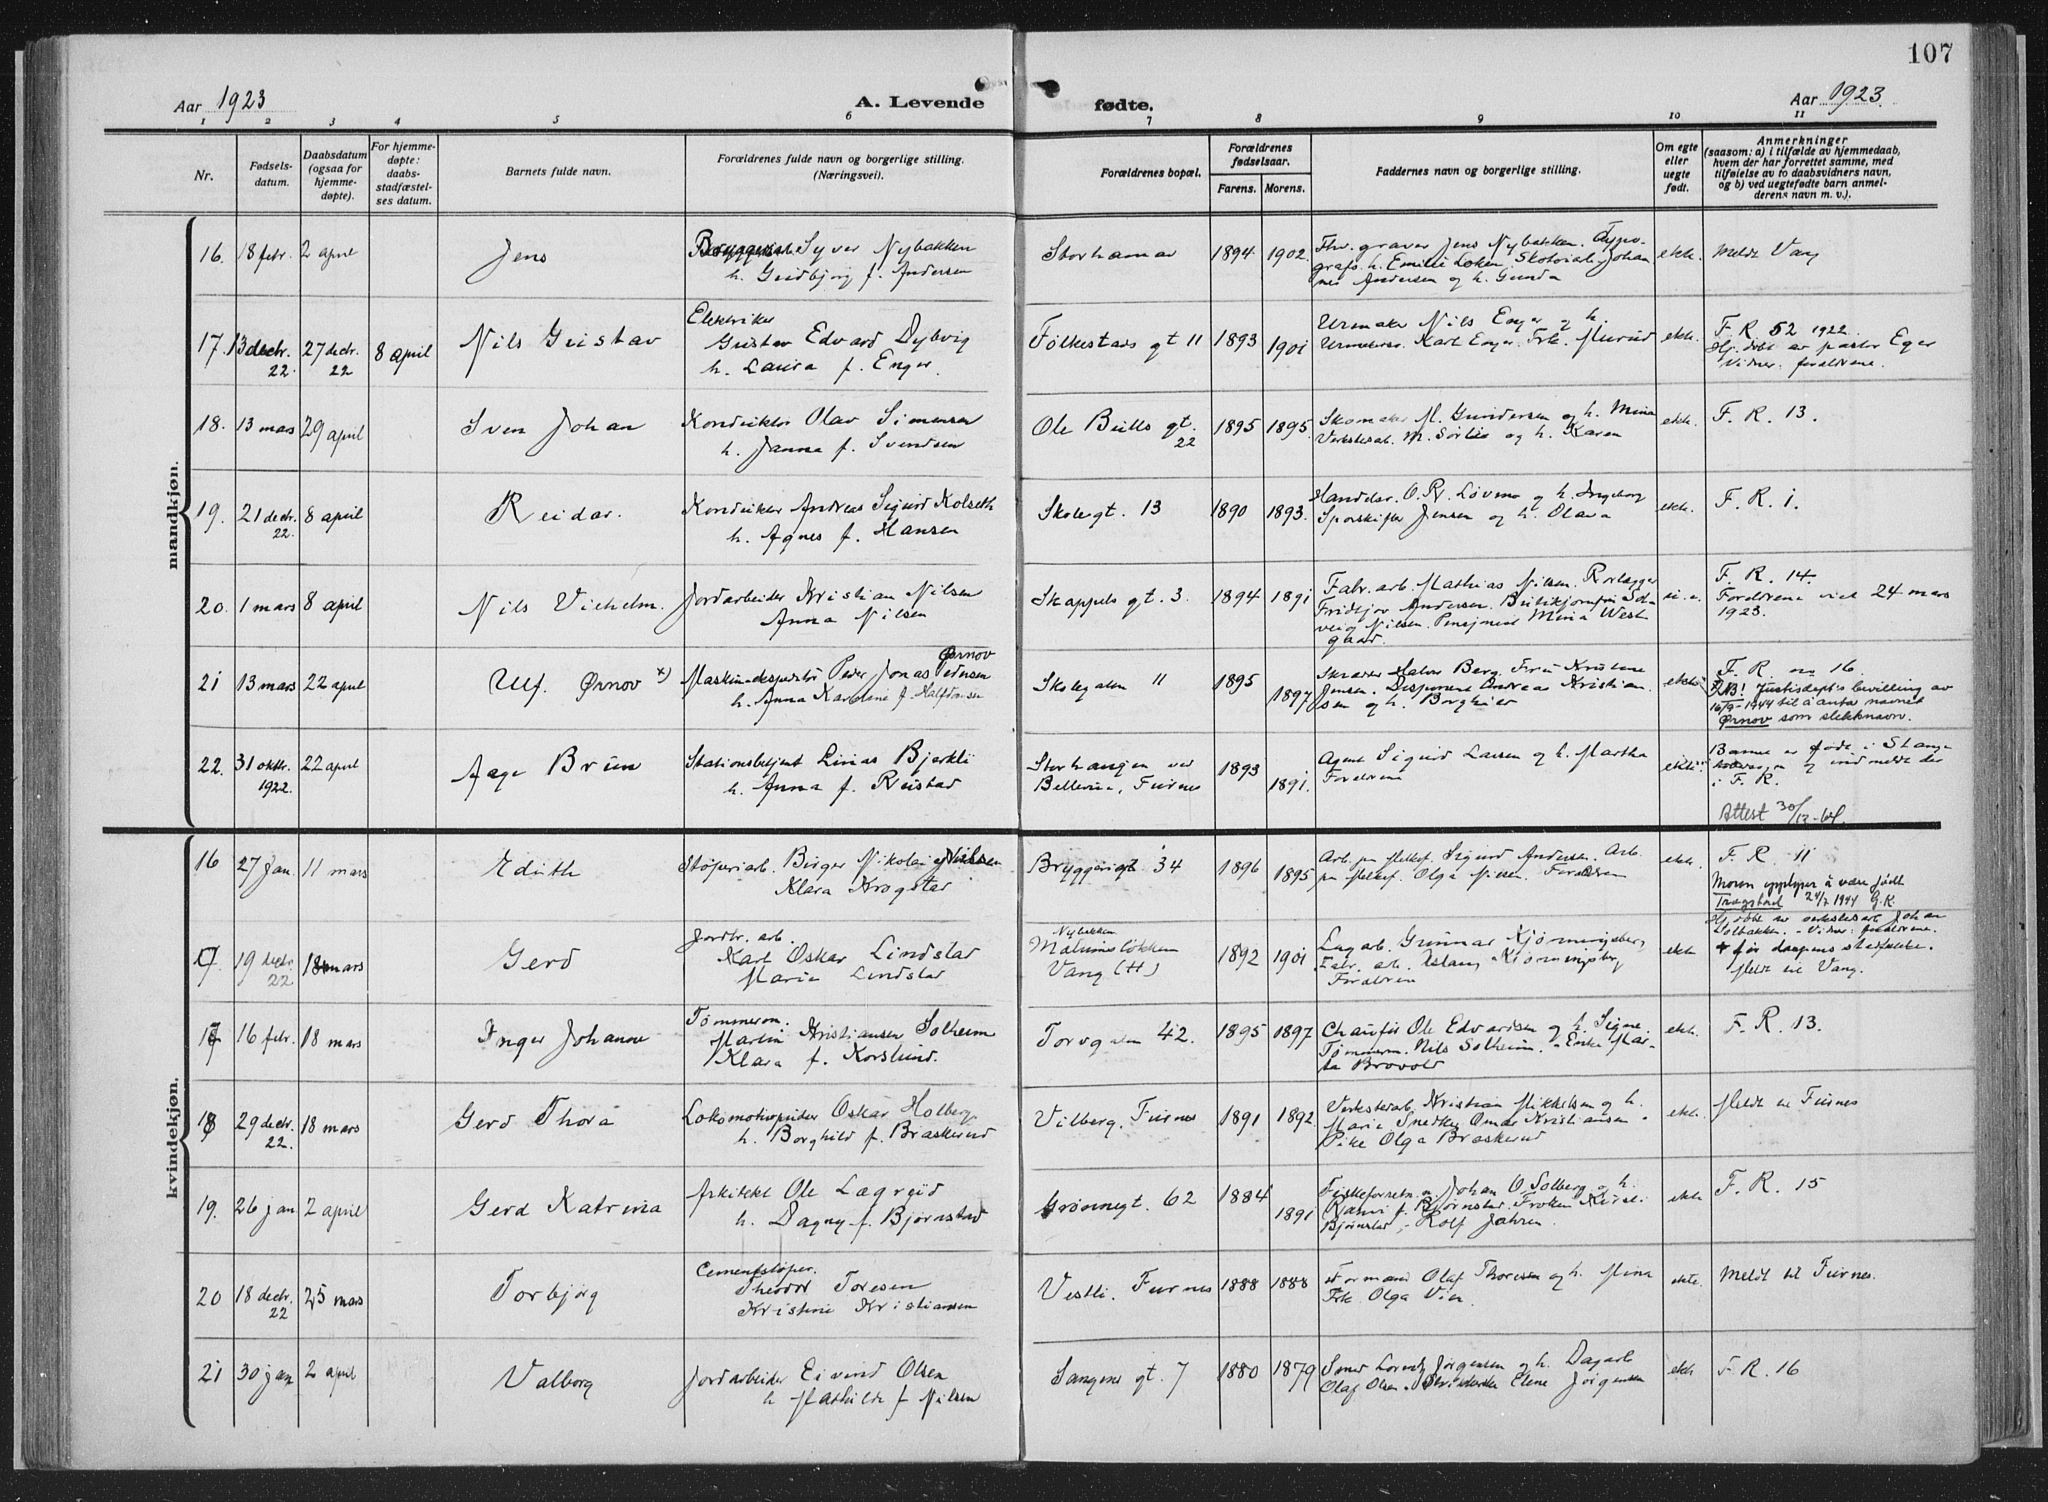 107
Aar 1923
A. Levende fødte.
Aar 1923.
1 2 3 4 5 6 7 8 9 10 11
Nr.
Fødsels-
datum.
Daabsdatum
(ogsaa for
hjemme-
døpte).
For hjemme-
døpte:
daabs-
stadfæstel-
ses datum.
Barnets fulde navn.
Forældrenes fulde navn og borgerlige stilling.
(Næringsvei).
Forældrenes bopæl.
Forældrenes
fødselsaar.
Farens. Morens.
Faddernes navn og borgerlige stilling.
Om egte
eller
uegte
født.
Anmerkninger
(saasom: a) i tilfælde av hjemmedaab,
hvem der har forrettet samme, med
tilføielse av to daabsvidners navn,
og b) ved uegtefødte barn anmel-
derens navn m. v.).
mandkjøn.
16. 18 febr. 2 april
Jens
Syver Nybakken
h. Gudbjørg f. Andersen
Storhamar 1894 1902.
graver Jens Nybakken. Typo-
grafs h. Emilie Løken, Johan
nes Andersen og h. Gunda
ekte. Meldt Vang
17. 13 decbr. 22. 27 decbr. 22 8 april
Nils Gustav
Elektriker
Gustav Edvard Dybvig
h. Laura f. Enger.
Folkestads gt 11 1893 1901
Urmaker Nils Enger og h.
Karl Enger. Frk. Murud
ekte.
F. R. 52 1922.
Hj. døbt av pastor Eger
Vidner: forældrene.
18. 13 mars 29 april
Sven Johan
Konduktør Olav Simensen
h. Janna f. Svendsen
Ole Bulls gt. 22 1895 1895.
Skomaker M. Gundersen og h. Mina
Verkstedarb. M. Sørlie og h. Karen
ekte. F. R. 13.
19. 21 decbr. 22. 8 april
Reidar.
Konduktør Andreas Sigurd Kolseth
h. Agnes f. Hansen
Skolegt. 13 1890 1893.
Handelsr. O. R. Løvmo og h. Ingeborg
Sporskifter Jensen og h. Olava
ekte. F. R. 1.
20. 1 mars 8 april
Nils Vilhelm.
Jordarbeider Kristian Nilsen
Anna Nilsen
Skappels gt. 3. 1894 1891
Fabr. arb. Mathias Nilsen. Rørlægger
Fridtjov Andersen. Sol-
veig Nilsen. Mina West
gaard
F. R. 14.
Forældrene viet 24 mars
1923.
21 13 mars 22 april
Ulf. Ørnov x)
Ørnov
Maskinekspeditør Peder Jonas Pedersen
h. Anna Karoline f. Halfdansen
Skolegaten 11 1895 1897
Skrædder Halvor Berg. Fru Kristine
Jensen. Disponent Andreas Kristian-
sen og h. Borghild
ekte
F. R. no 16
x) NB! Justisdept's bevilling av
16/9-1944 til å anta navnet
Ørnov som slektsnavn.
22. 31 oktbr. 1922. 22 april
Aage Brun
Stationsbetjent Linas Bjerkli
h. Anna f. Rustad
Storhaugen ved
Bellevue, Furnes
1893 1891.
Agent Sigurd Larsen og h. Martha
Foreldrene
ekte
Barnet er født i Stange
og indmeldt der
i F. R.
Attest 30/12-64.
kvindekjøn.
16 27 jan. 11 mars
Edith
Støperiarb. Birger Nikolai Nilsen
Klara Krogstad
Bryggerigt 34 1896 1895
Arb. Sigurd Andersen. Arb.
Olga Nilsen. Foreldren
ekte. F. R. 11
Moren opplyser å være født
Trøgstad 24/7 1944 G.K.
17. 19 decbr. 22 18 mars
Gerd
Jordbr. arb.
Karl Oskar Lindstad
Marie Lindstad
Nybakken
Malmsløkken
Vang (H)
1892 1901
Lag arb. Gunnar Kjørningsberg
Fabr. arb. Aslaug Kjørningsberg
Foreldren
ekte
Hj. døbt av verkstedsarb. Johan
Holbakken. - Vidner: foreldrene.
+ før daapens stadfestelse.
Meldt til Vang.
17 16 febr. 18 mars
Inger Johanne
Tømmerm.
Martin Kristiansen Solheim
Klara f. Korslund.
Torvgaten 42. 1895 1897
Chauffør Ole Edvardsen og h. Signe.
Tømmerm. Nils Solheim. - Enke Mar-
ta Brovold
ekte. F. R. 13.
18 29 decbr. 22. 18 mars
Gerd Thora
Lokomotivpudser Oskar Holberg
h. Borghild f. Braskerud
Vilberg. Furnes 1891 1892.
Verkstedarb. Kristian Mikkelsen og h.
Marie Snedker Omar Kristiansen -
Pike Olga Braskerud
ekte. Meldt til Furnes
19. 26 jan 2 april
Gerd Katrina
Arkitekt Ole Lægreid
h. Dagny f. Bjørnstad
Grønnegt. 62 1884 1891
Johan O. Solberg og h.
Ragni f. Bjørnstad. Frøken Kirsti
Bjørnstad - Rolf Jahren.
ekte F. R. 15
20 18 decbr. 22 25 mars
Torbjørg
Cementstøper.
Theodor Toresen
Kristine Kristiansen
Vestli. Furnes 1888 1888
Formand Olaf Thoresen og h. Mina
Frk. Olga Vien.
ekte. Meldt til Furnes.
21 30 jan 2 april
Valborg
Jordarbeider Eivind Olsen
h Mathilde f Nilsen
Sangene gt. 7 1880 1879
Smed Lorentz Jørgensen og h. Dagart
Olaf Olsen. Elene Jørgensen
ekte F. R. 16